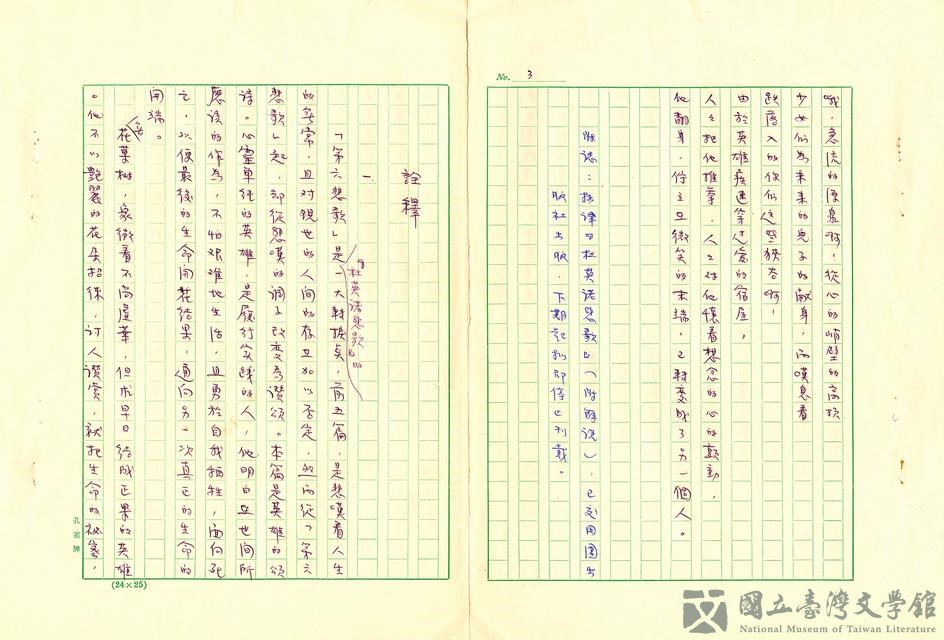 No. 3
哦，急流的源泉啊！從心的峭壁的高娍
少女們為未來的兒子的獻身，而嘆息着
跌落入的你们這些狹谷啊，
由於英雄疾速穿过愛的宿屋，
人々把他推舉，人々对他懷着想念的心的顫動，
他翻身，佇立在微笑的末端，已轉变成了另一個人。
附誌：拙譯『杜英諾悲歌』（附解說），已交田園出
版社出版，下期起擬即停止刊載。
詮釋
一、
「第六悲歌」是『杜英諾悲歌』的一大轉捩点，前五篇，是悲嘆着人生
的無常，且对現世的人间的存在加以否定，然而從「第六
悲歌」起，却從悲嘆的調子改变為讚頌。本篇是英雄的頌
詩。心靈单純的英雄，是履行实踐的人，他明白在世间所
應该的作為，不怕艰难地生活，且勇於自我牺牲，面向死
亡，以便最後的生命開花結果，通向另一次真正的生命的
開端。
無花菓樹，象徵着不尚虛華，但求早日結成正果的英雄
。他不以艷麗的花朵招徠，讨人讚赏，就把生命的秘密，
孔雀牌
(24×25)
國立臺灣文學館
National Museum of Taiwan Literature